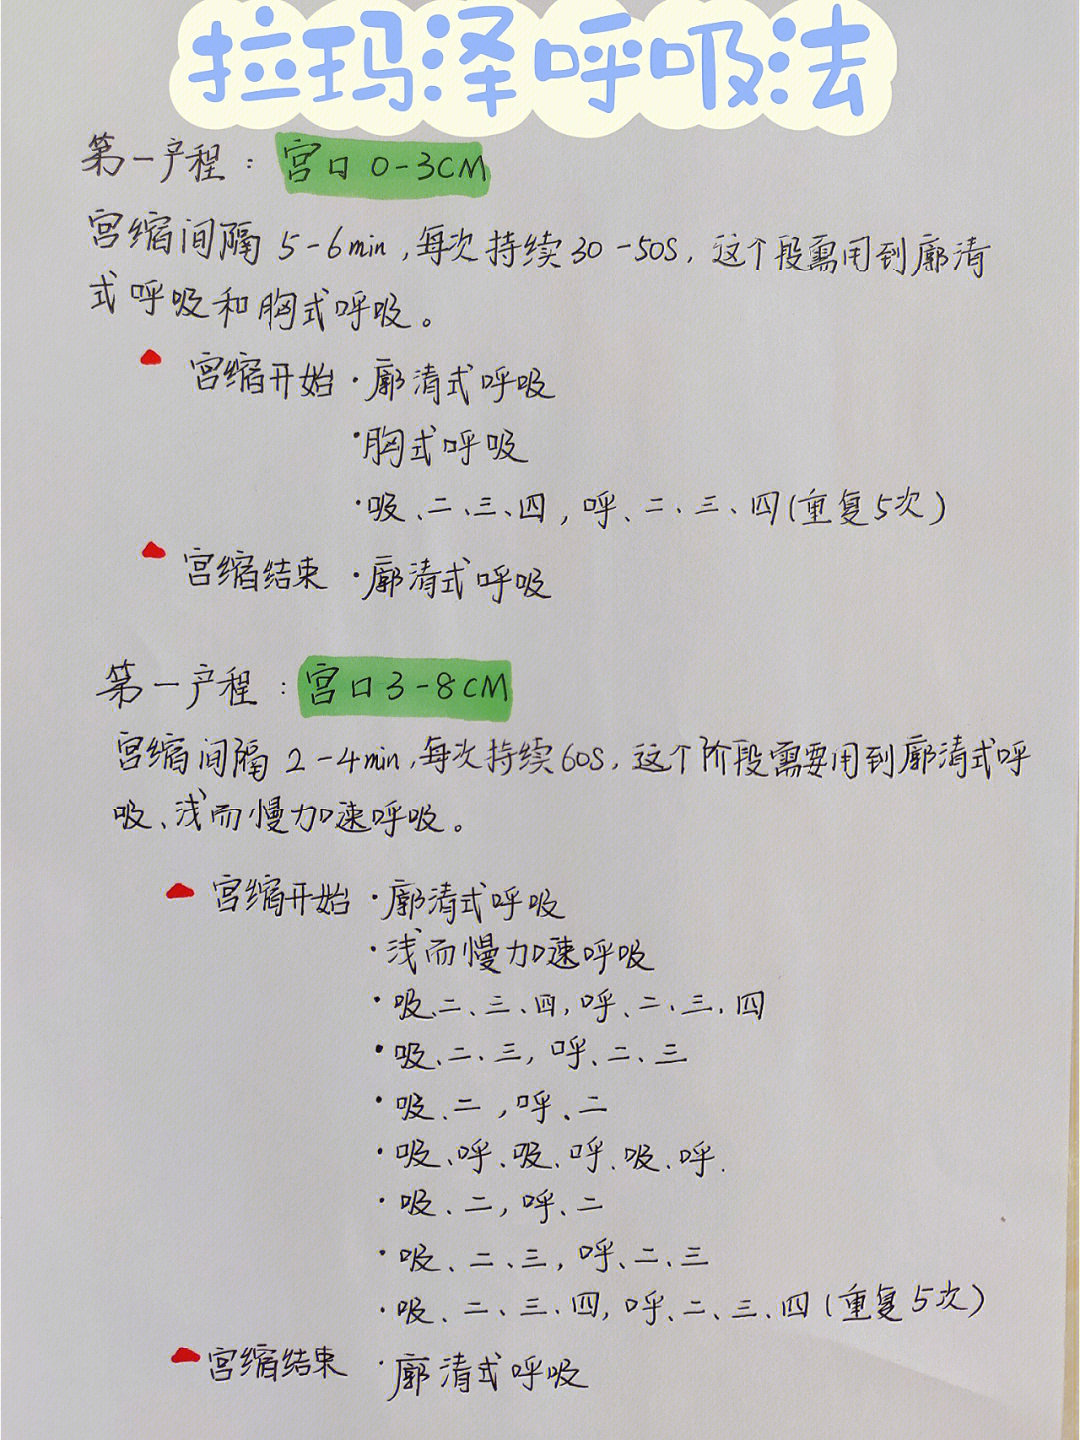 拉玛泽呼吸法
第一产程：宫口0-3CM
宫缩间隔5-6min,每次持续30-50S,这个段需用到廓清
式呼吸和胸式呼吸。
宫缩开始·廓清式呼吸
·胸式呼吸
·吸、二、三、四,呼、二、三、四(重复5次)
宫缩结束·廓清式呼吸
第一产程：宫口3-8CM
宫缩间隔2-4min,每次持续60S,这个阶段需要用到廓清式呼
吸、浅而慢加速呼吸。
宫缩开始·廓清式呼吸
·浅而慢加速呼吸
·吸、二、三、四,呼、二、三、四
·吸、二、三,呼、二、三
·吸、二,呼、二
·吸、呼、吸、呼、吸、呼.
·吸、二,呼、二
·吸、二、三,呼、二、三
·吸、二、三、四,呼、二、三、四(重复5次)
宫缩结束·廓清式呼吸